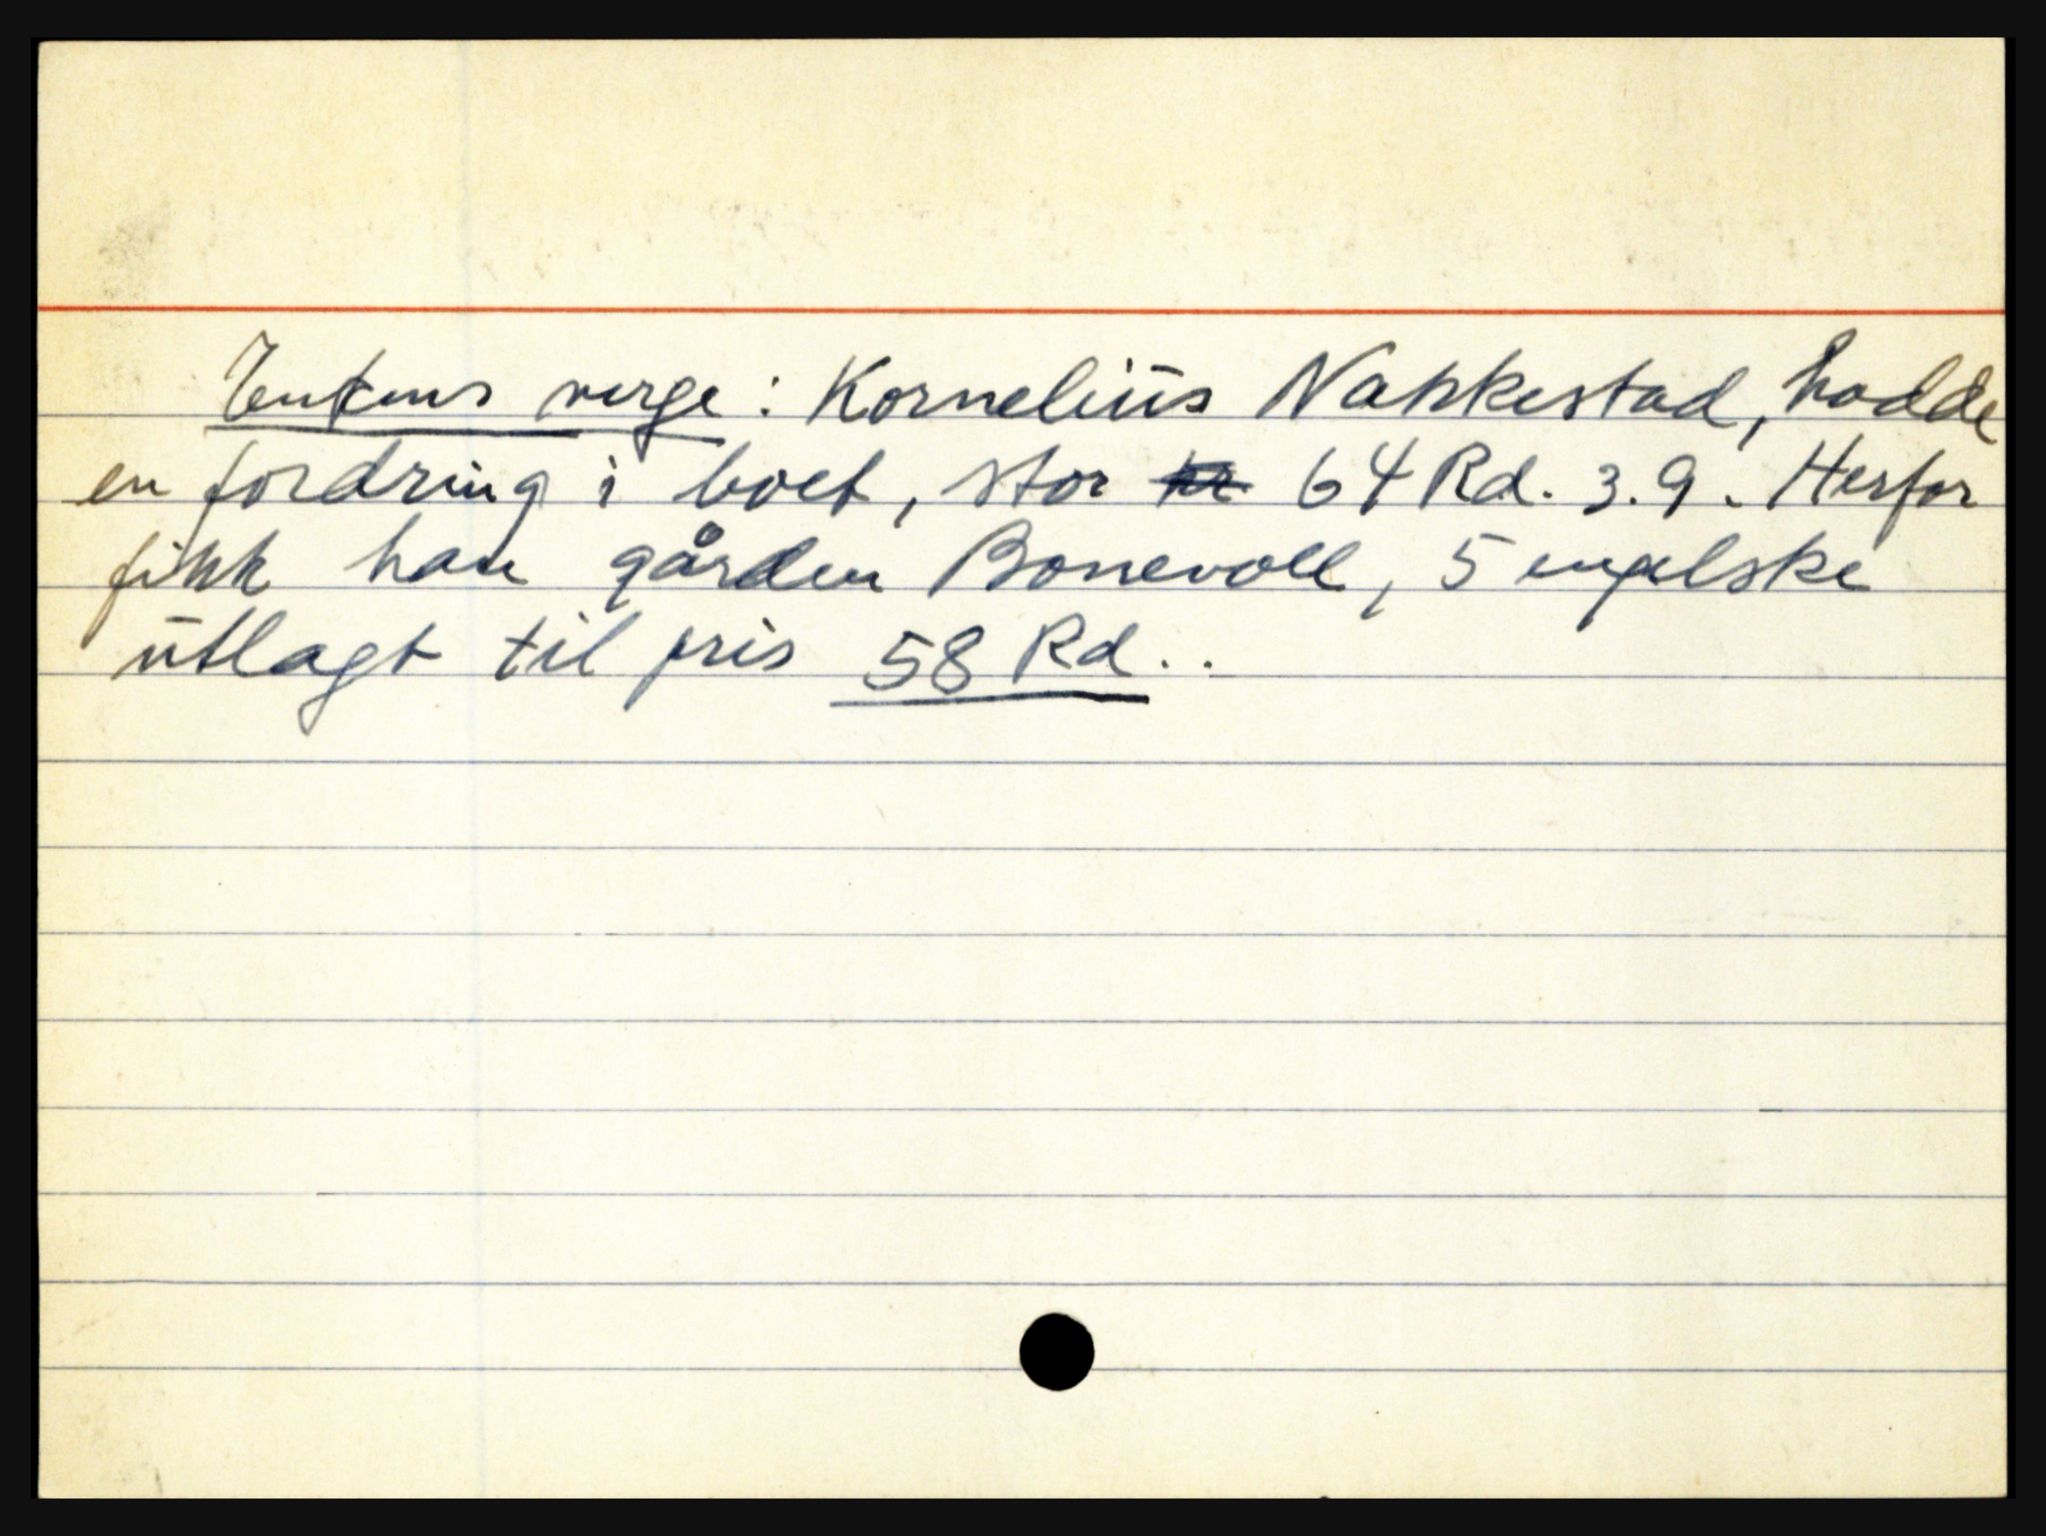 Enkens verge: Kornelius Nakkestad, hadde
en fordring i boet, stor kr 64 Rd. 3.9. Herfor
fikk han gården Bonevoll, 5 engelske
utlagt til pris 58 Rd..